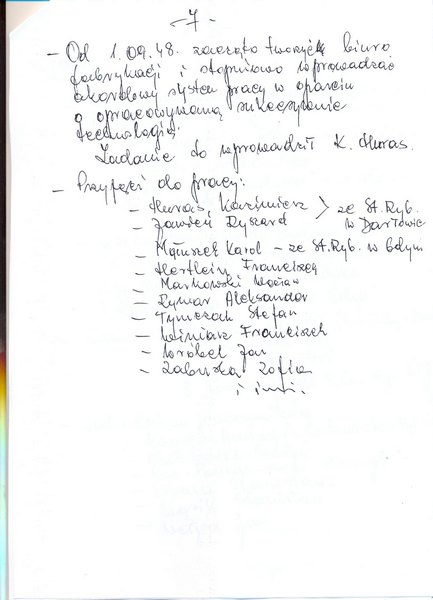 - 7 -
- Od 1.09.48. zaczęto tworzyć biuro
fabrykacji i stopniowo wprowadzać
akordowy system pracy w oparciu
o opracowywaną sukcesywnie
technologię.
Zadanie to wprowadził K. Huras.
- Przyjęci do pracy:
- Huras, Kazimierz > ze St. Ryb.
- Jawień Ryszard w Darłowie
- Matuszek Karol - ze St. Ryb. w Gdyni
- Hertlein Franciszek
- Markowski Wacław
- Rymar Aleksander
- Tymczak Stefan
- Winiarz Franciszek
- Wróbel Jan
- Zaburska Zofia
i inni.